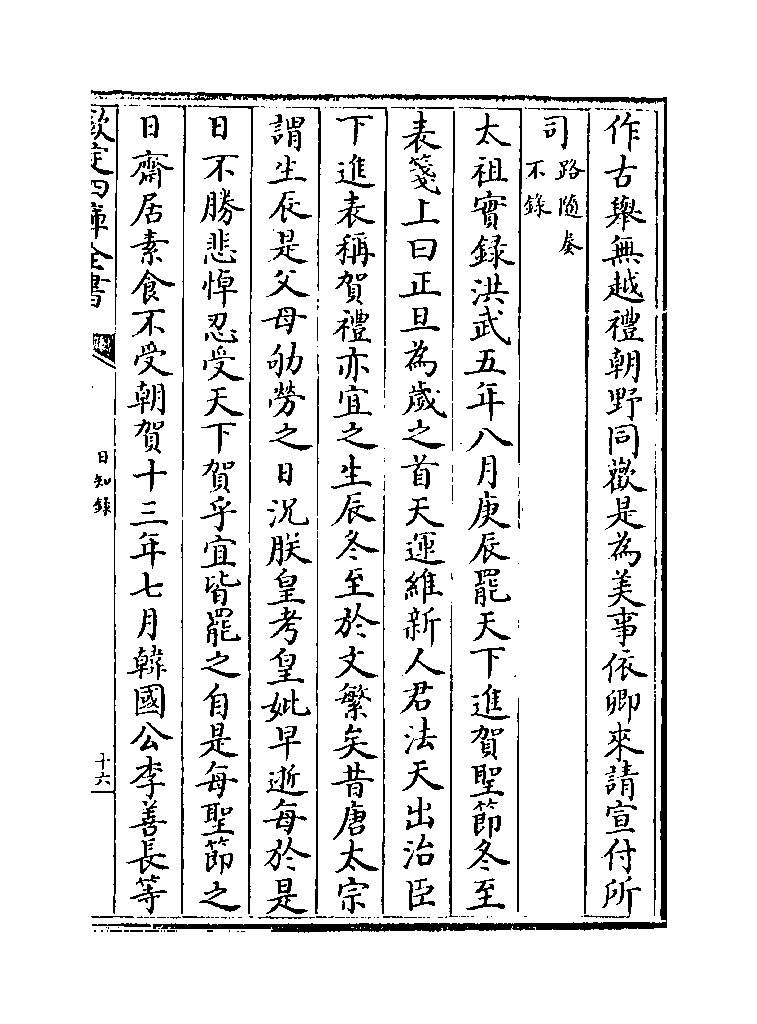 作古舉無越禮朝野同歡是為美事依卿來請宣付所
司路隨奏
不錄
太祖實録洪武五年八月庚辰罷天下進賀聖節冬至
表箋上曰正旦為歲之首天運維新人君法天出治臣
下進表稱賀禮亦宜之生辰冬至於文繁矣昔唐太宗
謂生辰是父母劬勞之日況朕皇考皇妣早逝每於是
日不勝悲悼忍受天下賀乎宜皆罷之自是每聖節之
日齋居素食不受朝賀十三年七月韓國公李善長等
欽定四庫全書
日知錄
十六